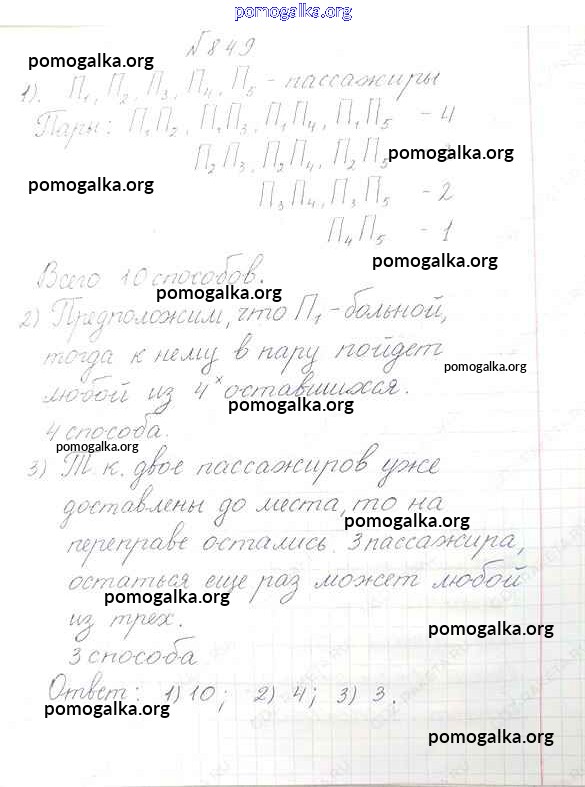 pomogalka.org
№849
pomogalka.org
1). П₁, П₂, П₃, П₄, П₅ - пассажиры
Пары: П₁П₂, П₁П₃, П₁П₄, П₁П₅ - 4
П₂П₃, П₂П₄, П₂П₅
pomogalka.org
pomogalka.org
П₃П₄, П₃П₅ - 2
П₄П₅ - 1
pomogalka.org
Всего 10 способов.
pomogalka.org
2) Предположим, что П₁ - больной,
тогда к нему в пару пойдет
pomogalka.org
любой из 4ˣ оставшихся.
pomogalka.org
4 способа.
pomogalka.org
3) Т.к. двое пассажиров уже
доставлены до места, то на
pomogalka.org
переправе остались 3 пассажира,
остаться еще раз может любой
pomogalka.org
из трех.
pomogalka.org
3 способа
Ответ: 1) 10; 2) 4; 3) 3.
pomogalka.org
pomogalka.org